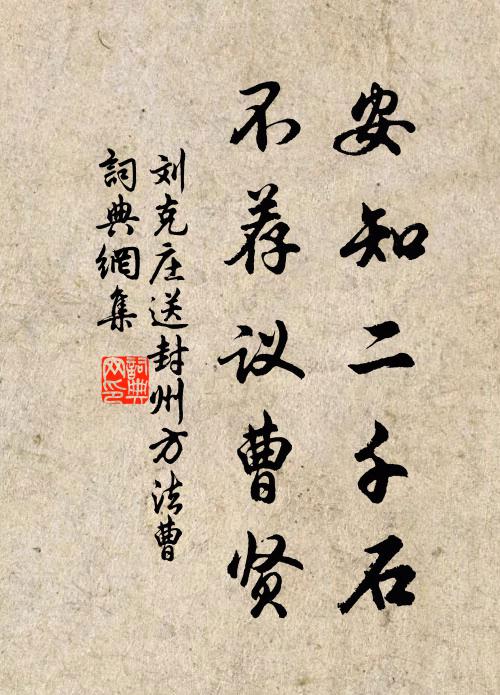 安知二千石
不荐议曹贤
刘克庄送封州方法曹
詞典網集
詞典网印